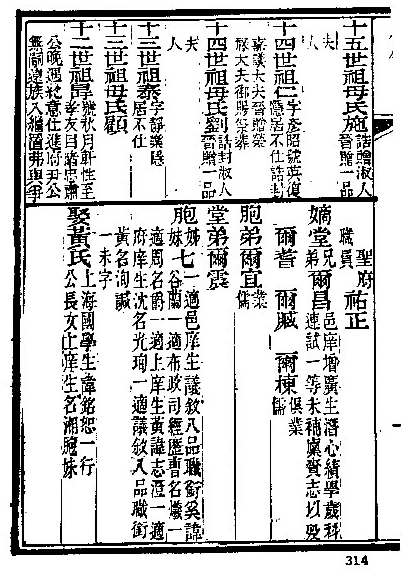 十五世祖母氏施誥贈淑人
晉贈一品
夫人
十四世祖仁字彥昭號英復
隱居不仕誥封
嘉議大夫晉贈榮
祿大夫御賜祭葬
十四世祖母氏劉誥封淑人
晉贈一品
夫人
十三世祖泰字靜樂隱
居不仕
十三世祖母氏顧
十二世祖號秋月鮮性至
孝友目睹忠肅
公晚遇絕意仕進府尹公
無嗣遂族入繼置弗與爭
聖府
職員祐正
嫡堂兄爾昌邑庠增廣生潛心績學歲科
弟連試一等未補廩賫志以歿
爾耆 爾臧 爾棟俱業
儒
胞弟爾宜業
儒
堂弟爾震
胞姊七一適邑庠生議敘八品職銜奚諱
妹谷蘭一適布政司經歷曹名熾一
適周名爵一適上庠生黃諱志澄一適
府庠生沈名光珣一適議敘八品職銜
黃名洵誠
一未字
娶黃氏上海國學生諱銘恕一行
公長女上庠生名湘胞妹
314